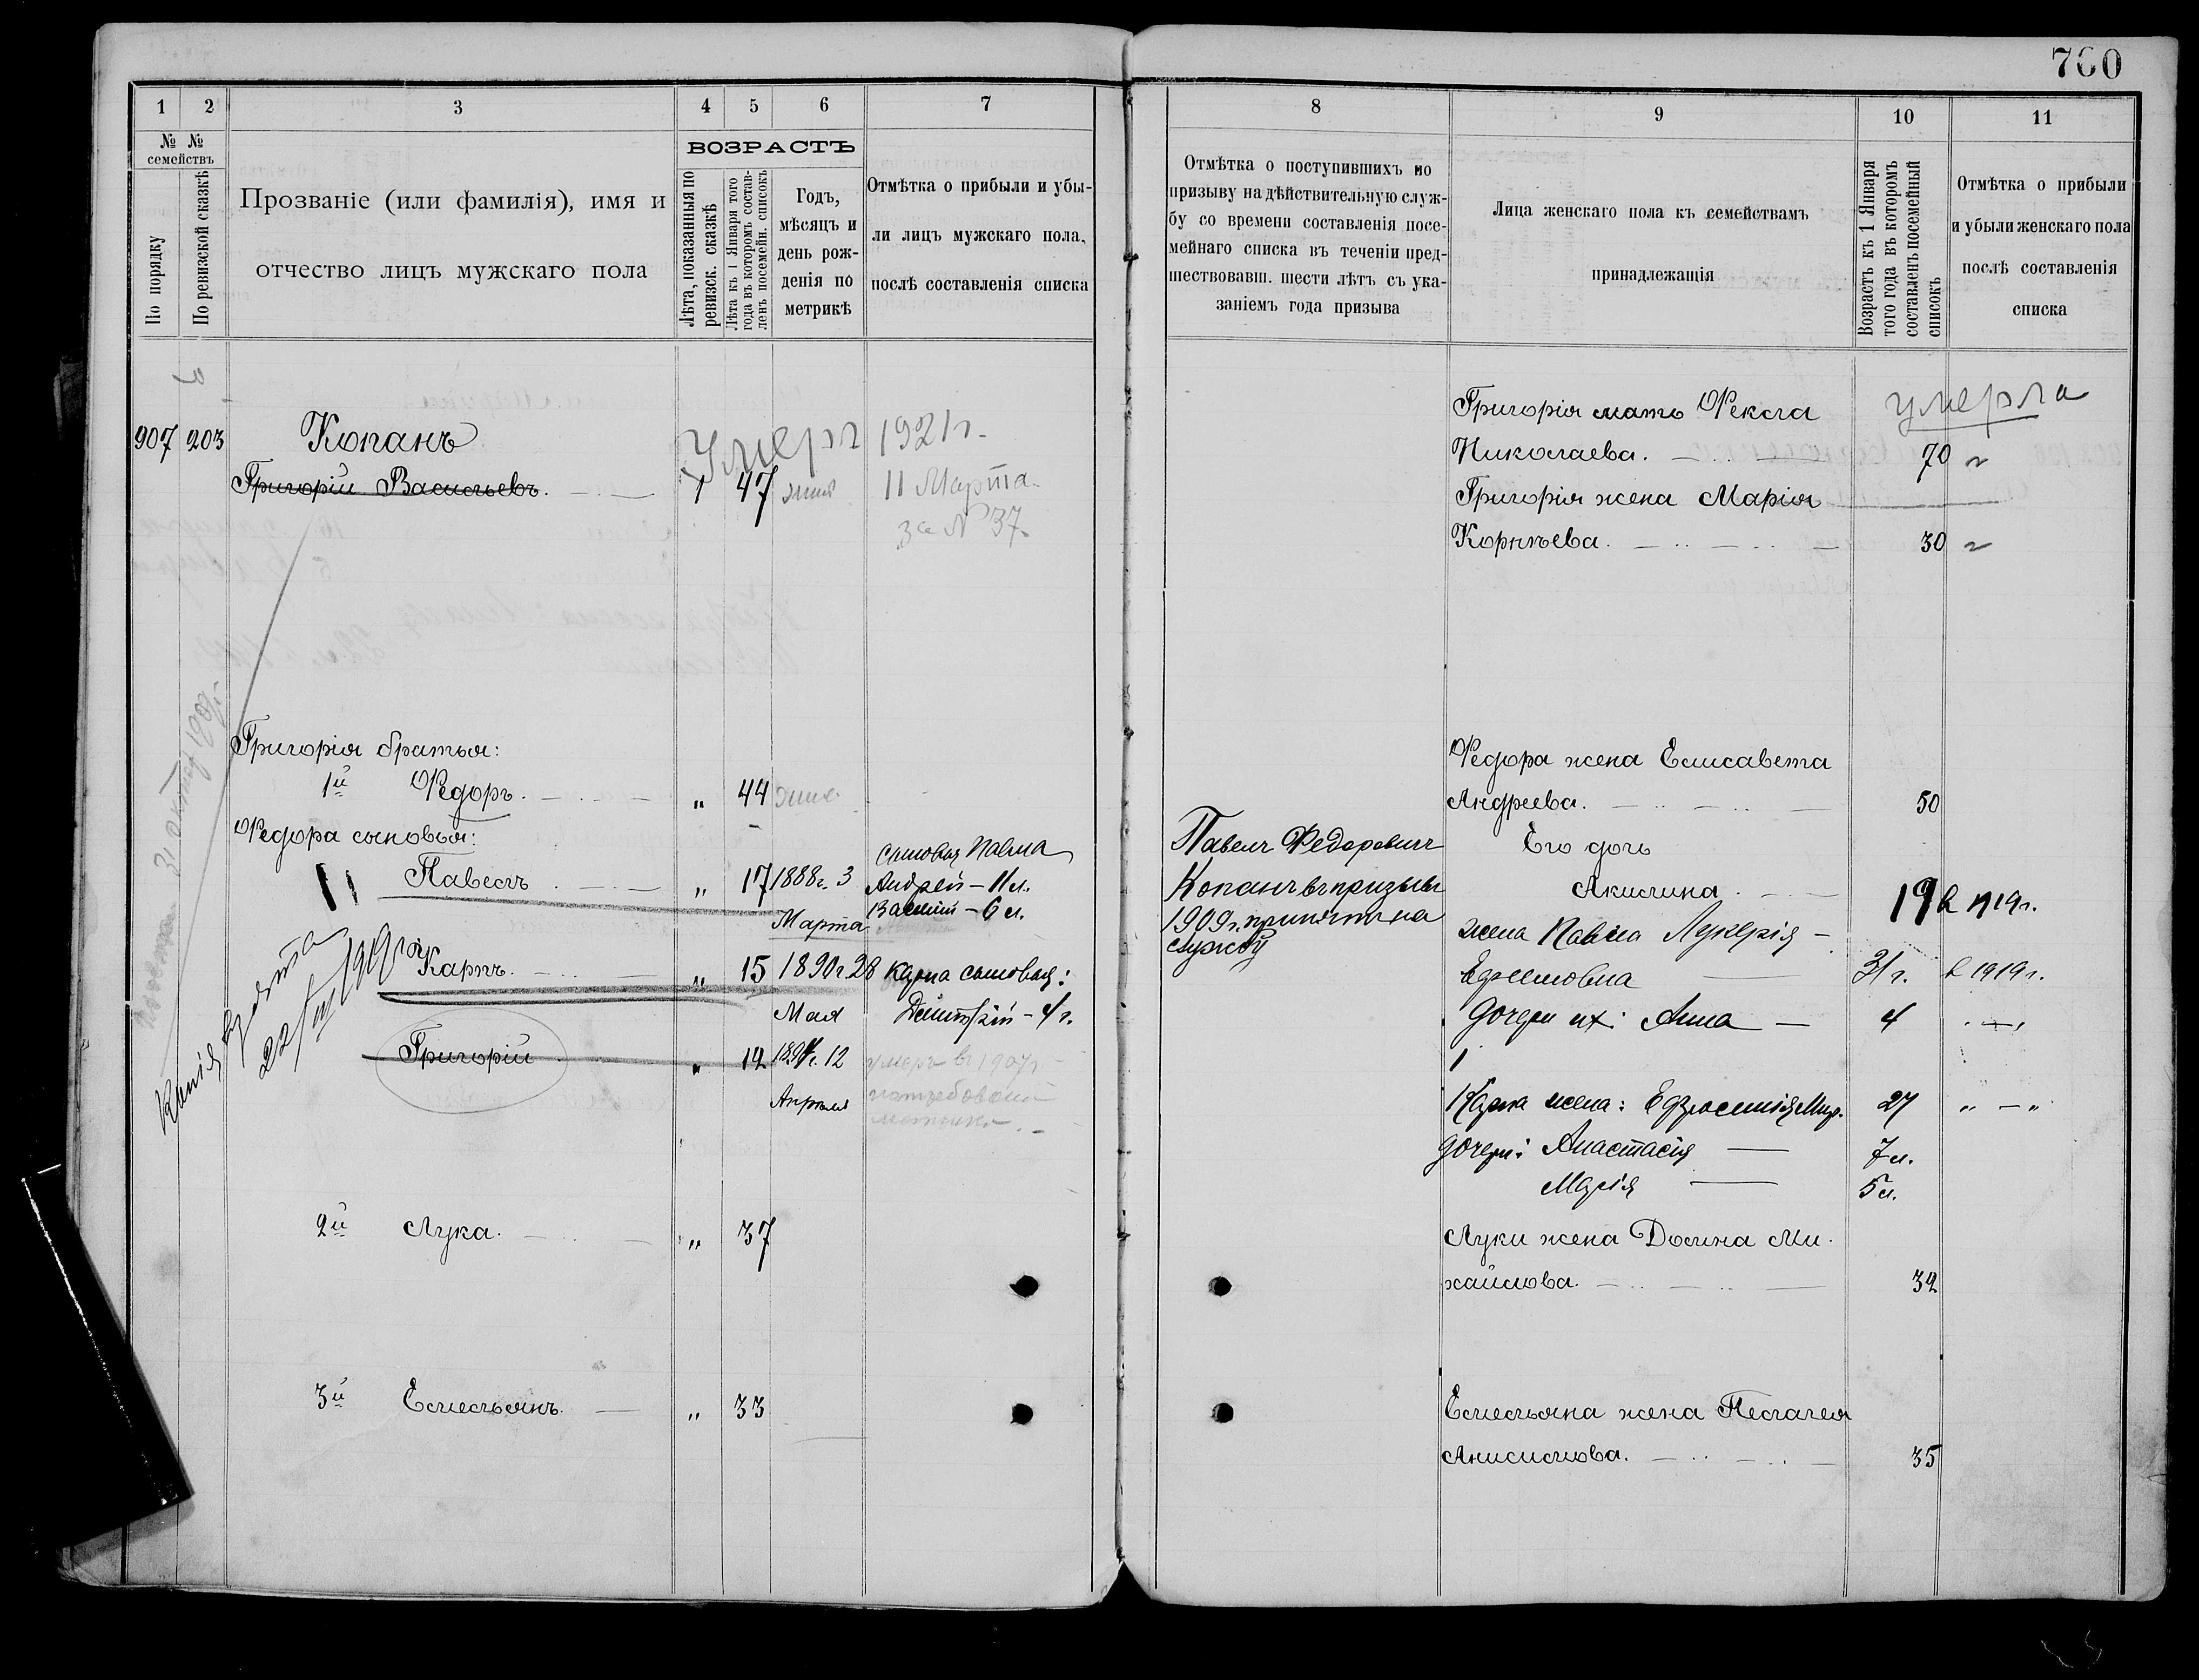 760
1 2 3 4 5 6 7
№ № семействъ
По порядку
По ревизской сказкѣ
Прозваніе (или фамилія), имя и
отчество лицъ мужскаго пола
ВОЗРАСТЪ
Лѣта, показанныя по
ревизск. сказкѣ
Лѣта къ 1 Января того
года въ которомъ состав-
ленъ посемейн. списокъ
Годъ,
мѣсяцъ и
день рож-
денія по
метрикѣ
Отмѣтка о прибыли и убы-
ли лицъ мужскаго пола,
послѣ составленія списка
907 203 Копанъ
Умеръ 1921 г.
Григорій Васильевъ. 1 47 11 Марта
за № 37.
Григорія братья:
1й Ѳедоръ. „ 44
Ѳедора сыновья:
Павелъ „ 17 1888 г. 3
Марта
сыновья Павла
Андрей – 11 л.
Василій – 6 л.
Карпъ. „ 15 1890 г. 28
Мая
Карпа сыновья:
Димитрій – 4 г.
Григорій „ 12 1894 г. 12
Апрѣля
умеръ въ 1907 г.
Копія взята
22/III 1919 г.
31 октяб 1909 г.
2й Лука. „ 37
3й Емельянъ. „ 33
8 9 10 11
Отмѣтка о поступившихъ по
призыву на дѣйствительную служ-
бу со времени составленія посе-
мейнаго списка въ теченіи пред-
шествовавш. шести лѣтъ съ ука-
заніемъ года призыва
Лица женскаго пола къ семействамъ
принадлежащія
Возрастъ къ 1 Января
того года въ которомъ
составленъ посемейный
списокъ
Отмѣтка о прибыли
и убыли женскаго пола
послѣ составленія
списка
Григорія мать Ѳекла умерла
Николаева. 70
Григорія жена Марія
Корнѣева. 30
Ѳедора жена Елисавета
Андреева. 50
Павелъ Федоровичъ
Копанъ въ призывъ
1909 г. принятъ на
службу
Его дочь
Акилина. 19 в 1919 г.
жена Павла Лукерія –
Ефимовна 31 г. в 1919 г.
дочери их: Анна – 4 „ – „
Карпа жена: Ефросинія Мир. 27 „ – „
дочери: Анастасія 7 л.
Марія 5 л.
Луки жена Домна Ми-
хайлова. 32
Емельяна жена Пелагея
Анисимова. 35